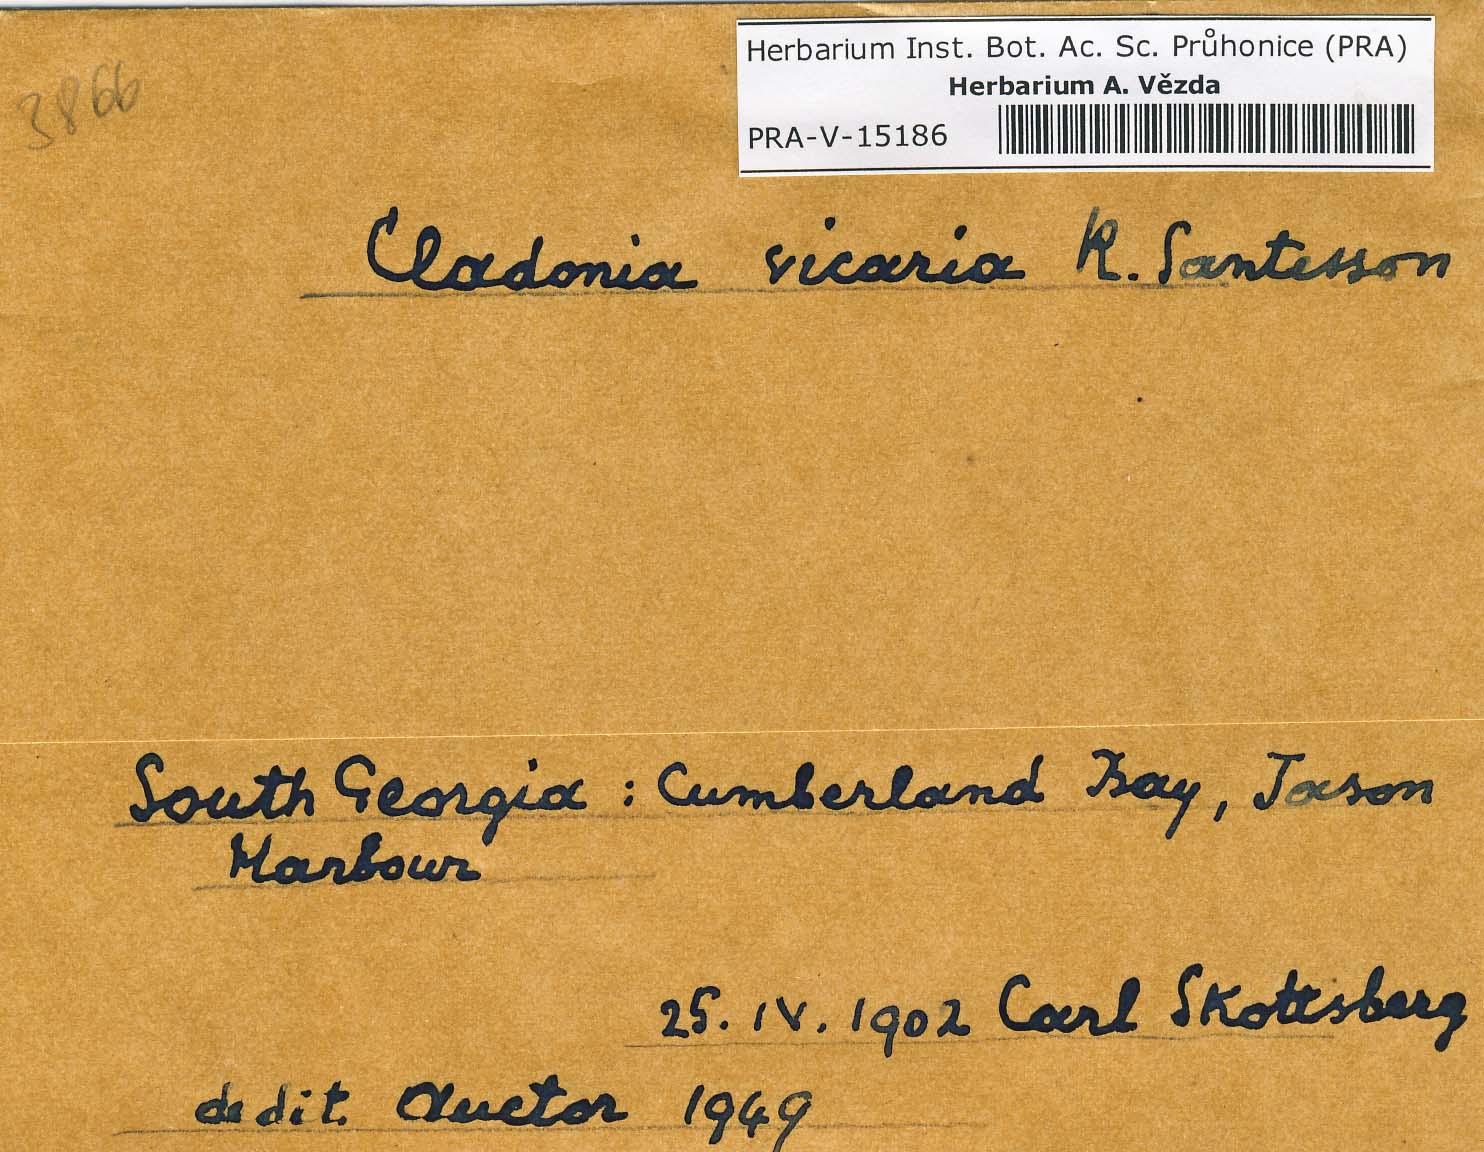 3866
Herbarium Inst. Bot. Ac. Sc. Průhonice (PRA)
Herbarium A. Vězda
PRA-V-15186
Cladonia vicaria R. Santesson
South Georgia : Cumberland Bay, Jason
Harbour
25. IV. 1902 Carl Skottsberg
dedit. Auctor 1949